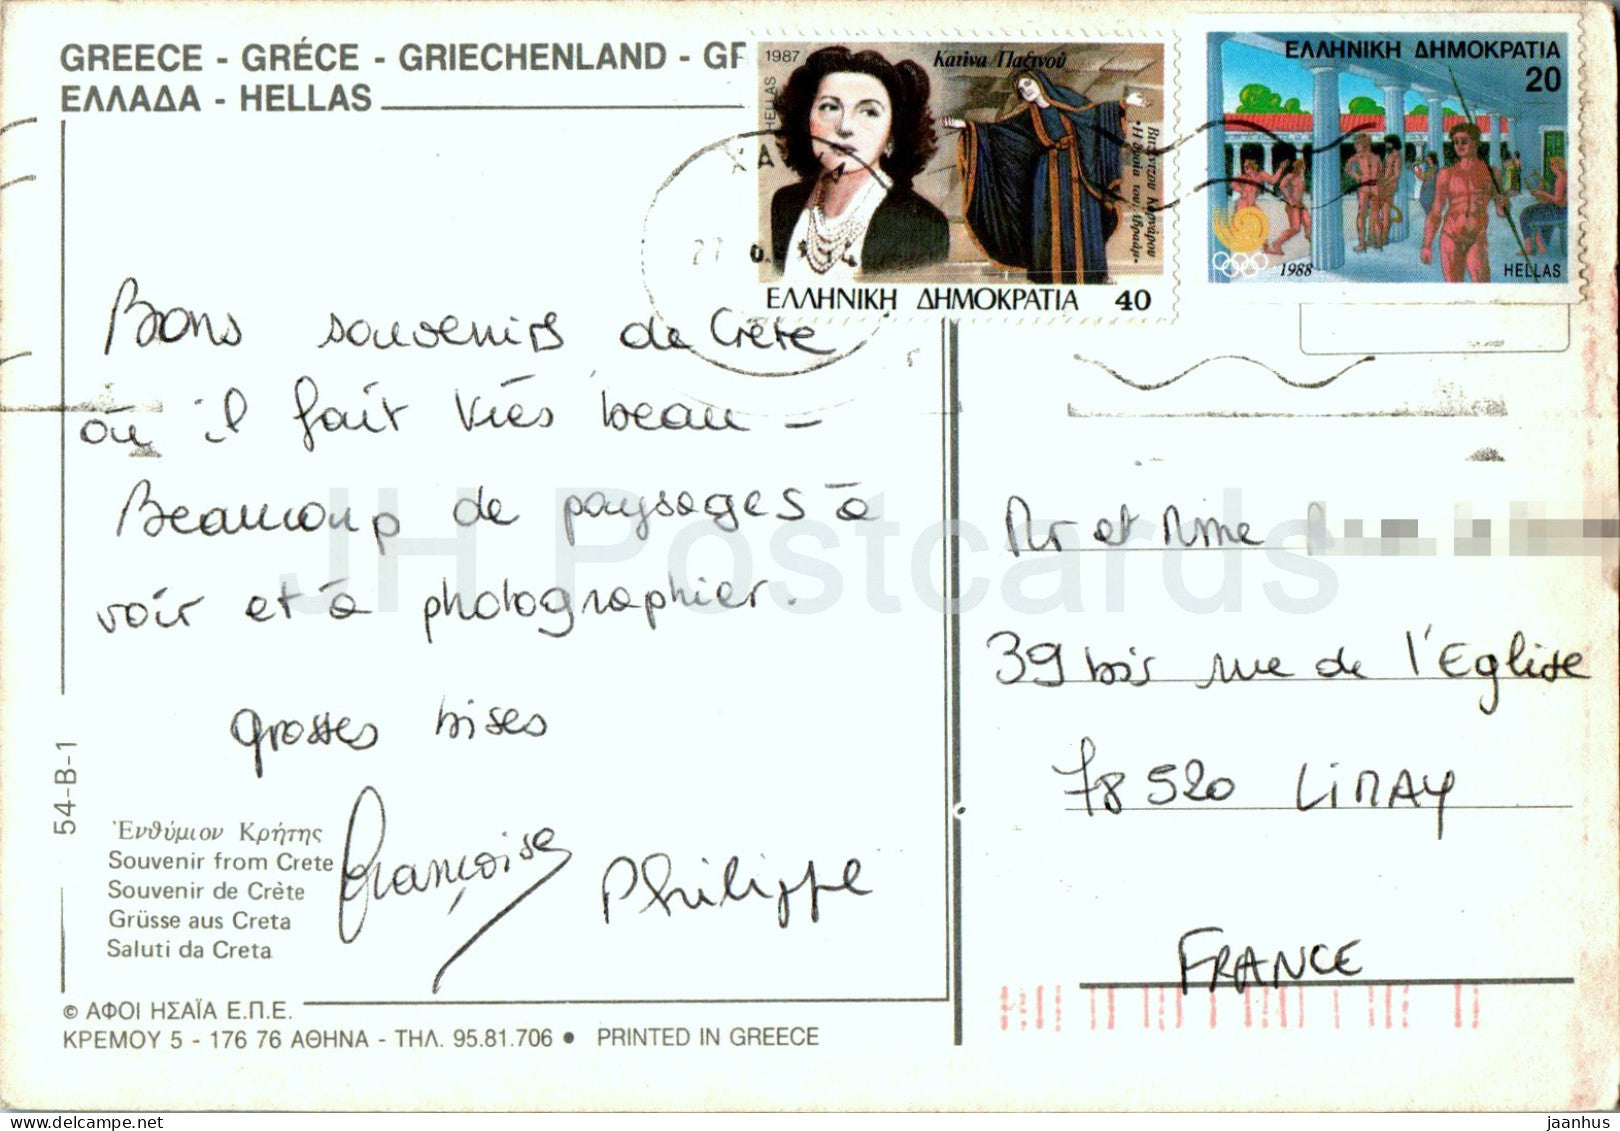 GREECE - GRÉCE - GRIECHENLAND - GR
ΕΛΛΑΔΑ - HELLAS
1987
HELLAS
Κατίνα Παξινού
Βιτζέντζου Κορνάρου
«Η θυσία του Αβραάμ»
ΕΛΛΗΝΙΚΗ ΔΗΜΟΚΡΑΤΙΑ 40
ΕΛΛΗΝΙΚΗ ΔΗΜΟΚΡΑΤΙΑ
20
1988
HELLAS
ΧΑ
Bons souvenirs de Crète
où il fait très beau -
Beaucoup de paysages à
voir et à photographier.
grosses bises
Françoise Philippe
Mr et Mme
39 bis rue de l'Eglise
78 520 LIMAY
FRANCE
54-B-1
Ἐνθύμιον Κρήτης
Souvenir from Crete
Souvenir de Crète
Grüsse aus Creta
Saluti da Creta
© ΑΦΟΙ ΗΣΑΪΑ Ε.Π.Ε.
ΚΡΕΜΟΥ 5 - 176 76 ΑΘΗΝΑ - ΤΗΛ. 95.81.706 ● PRINTED IN GREECE
JH Postcards
jaanhus